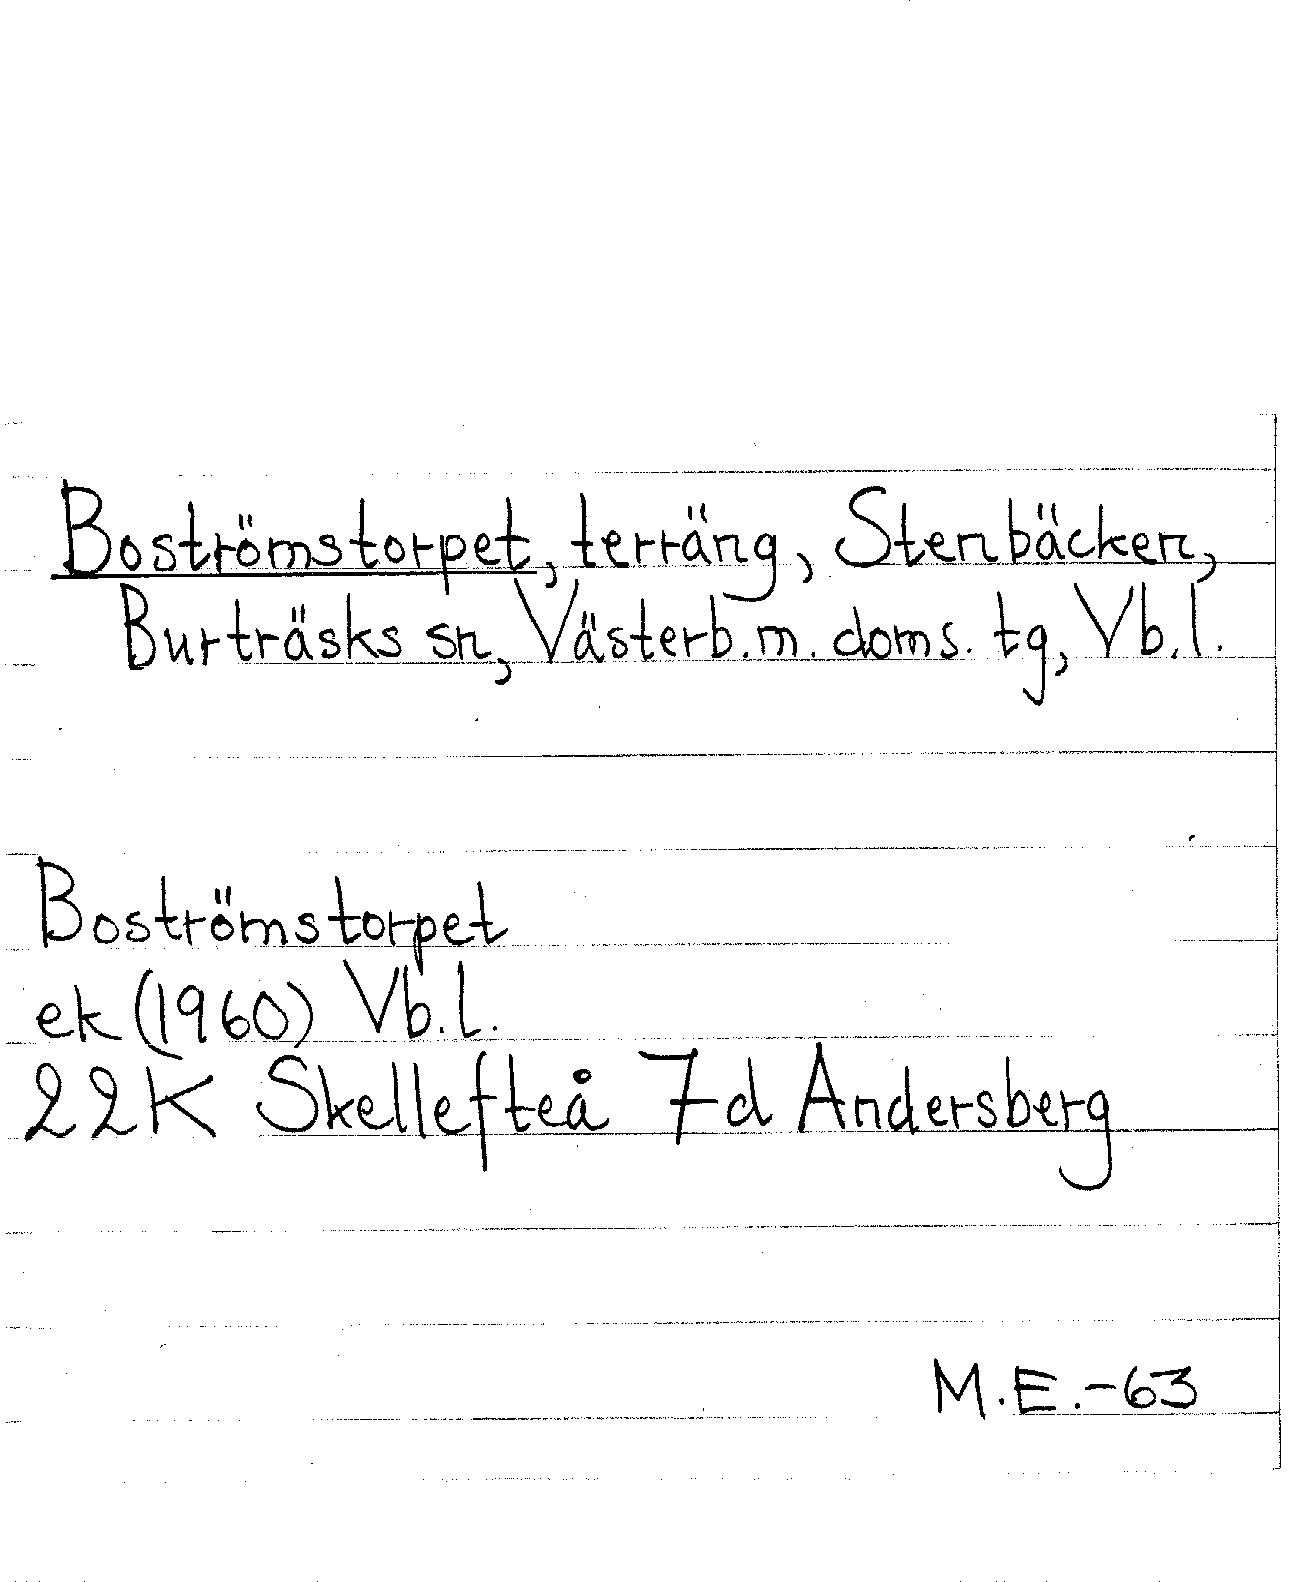 Boströmstorpet, terräng, Stenbäcken,
Burträsks sn, Västerb.m. doms. tg, Vb.l.
Boströmstorpet
ek (1960) Vb.l.
22K Skellefteå 7d Andersberg
M.E.-63